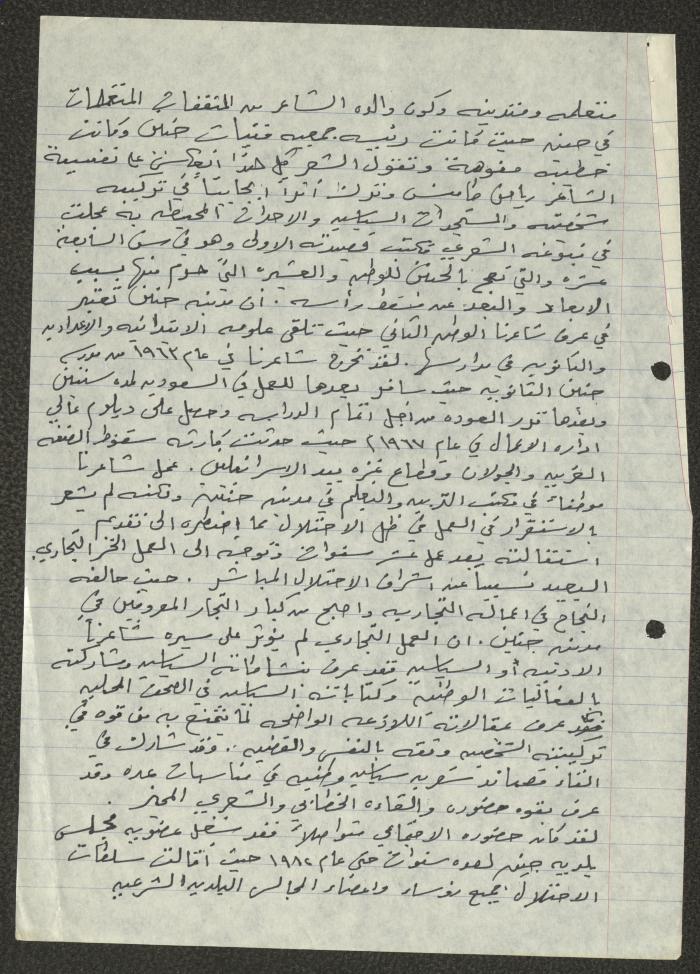 متعلمه ومتدينه وكون والده الشاعر من المثقفات المتعلمات
في حينه حيث كانت رئيسه جمعيه فتيات جنين وكانت
خطيبه مفوهة وتقول الشعر كل هذا انعكس على نفسية
الشاعر رياض وترك أثراً ايجابياً في تركيبه
شخصيته والمستجدات السياسيه والاحداث المحيطه به عجلت
في نبوغه الشعري فكتب قصيدته الاولى وهو في سن السابعة
عشره والتي تعج بالحنين للوطن والعشيره التي حرم منها بسبب
الابعاد والبعد عن مسقط رأسه . ان مدينه جنين تعتبر
في عرف شاعرنا الوطن الثاني حيث تلقى علومه الابتدائيه والاعداديه
والثانويه في مدارسها . لقد تخرج شاعرنا في عام ١٩٦٣ من مدرسه
جنين الثانويه حيث سافر بعدها للعمل في السعوديه لمده سنتين
وبعدها قرر العوده من اجل اتمام الدراسه وحصل على دبلوم عالي
اداره الاعمال في عام ١٩٦٧م حيث حدثت كارثه سقوط الضفه
الغربيه والجولان وقطاع غزه بيد الاسرائيلين . عمل شاعرنا
موظفاً في مكتب التربيه والتعليم في مدينه جنين ولكنه لم يشعر
بالاستقرار في العمل في ظل الاحتلال مما اضطره الى تقديم
استقالته بعد عمل عشر سنوات وتوجه الى العمل الحر التجاري
البعيد نسبياً عن اشراف الاحتلال المباشر . حيث حالفه
النجاح في اعماله التجاريه واصبح من كبار التجار المعروفين في
مدينه جنين . ان العمل التجاري لم يؤثر على سيره شاعرنا
الادبيه أو السياسيه فقد عرف بنشاطاته السياسيه ومشاركته
بالفعاليات الوطنية وكتاباته السياسيه في الصحف المحليه
فقد عرف بمقالاته اللاذعه الواضحه لما يتمتع به من قوه في
تركيبته الشخصيه وثقه بالنفس والقضيه .. وقد شارك في
القاء قصائد شعريه سياسيه وطنيه في مناسبات عده وقد
عرف بقوه حضوره والقاءه الخطابي والشعري المميز .
لقد كان حضوره الاجتماعي متواصلاً فقد شغل عضويه مجلس
بلديه جنين لعده سنوات حتى عام ١٩٨٢ حيث أقالت سلطات
الاحتلال جميع رؤساء واعضاء المجالس البلديه الشرعيه